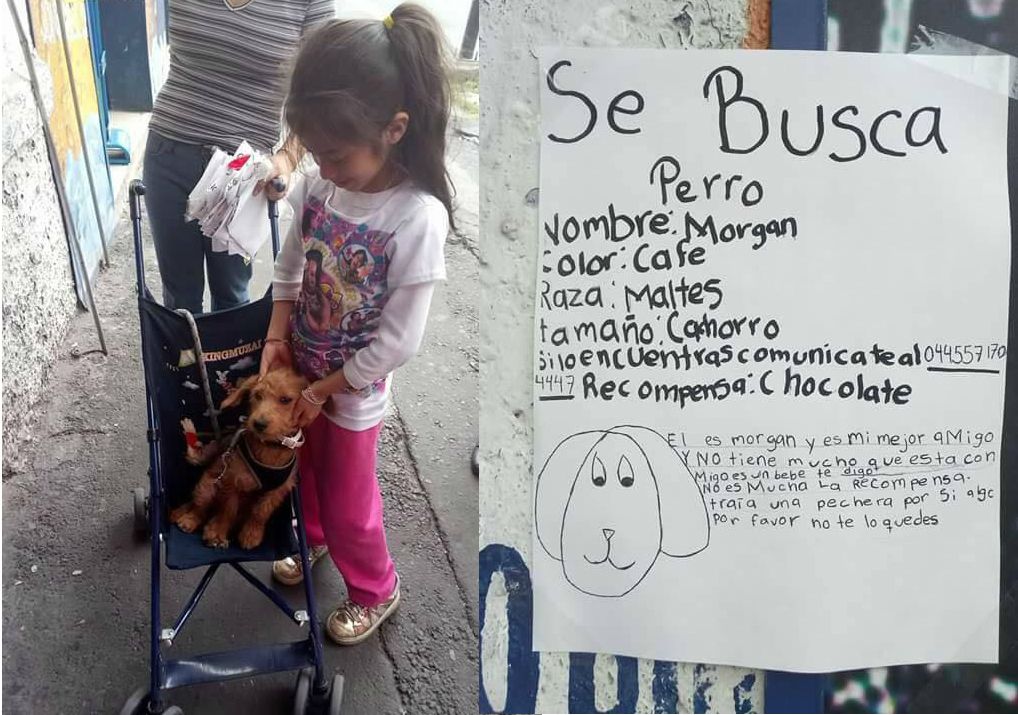 KINGMUZAI
Se Busca
Perro
Nombre: Morgan
Color: Cafe
Raza: Maltes
tamaño: Cahorro
Si lo encuentras comunicate al 044557170
4447 Recompensa: Chocolate
El es morgan y es mi mejor amigo
y no tiene mucho que esta con
migo es un bebe te digo
no es mucha la recompensa.
traia una pechera por si
por favor no te lo quedes